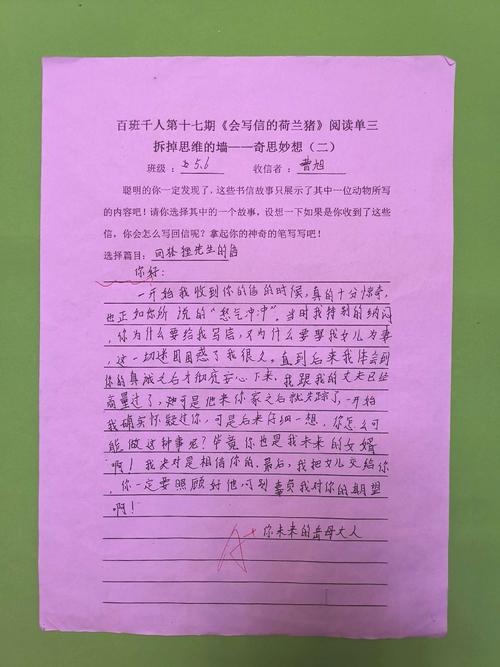 百班千人第十七期《会写信的荷兰猪》阅读单三
拆掉思维的墙——奇思妙想（二）
班级： 5.6 收信者：曹旭
聪明的你一定发现了，这些书信故事只展示了其中一位动物所写
的内容吧！请你选择其中的一个故事，设想一下如果是你收到了这些
信，你会怎么写回信呢？拿起你的神奇的笔写写吧！
选择篇目：同林狸先生的信
你好：
一开始我收到你的信的时候，真的十分惊奇，
也正如你所说的“怒气冲冲”。当时我特别的纳闷
，你为什么要给我写信，又为什么要娶我女儿为妻，
这一切迷困困惑了我很久。直到后来我体会到
你的真诚之后才彻底安心下来，我跟我的丈夫已经
商量过了，可是他来你家之后就失踪了，一开始
我确实怀疑过你，可是后来仔细一想，你怎么可
能做这种事呢？毕竟你也是我未来的女婿
啊！我绝对是相信你的，最后，我把女儿交给你
，你一定要照顾好他，可别辜负我对你的期望
啊！
你未来的岳母大人
A+